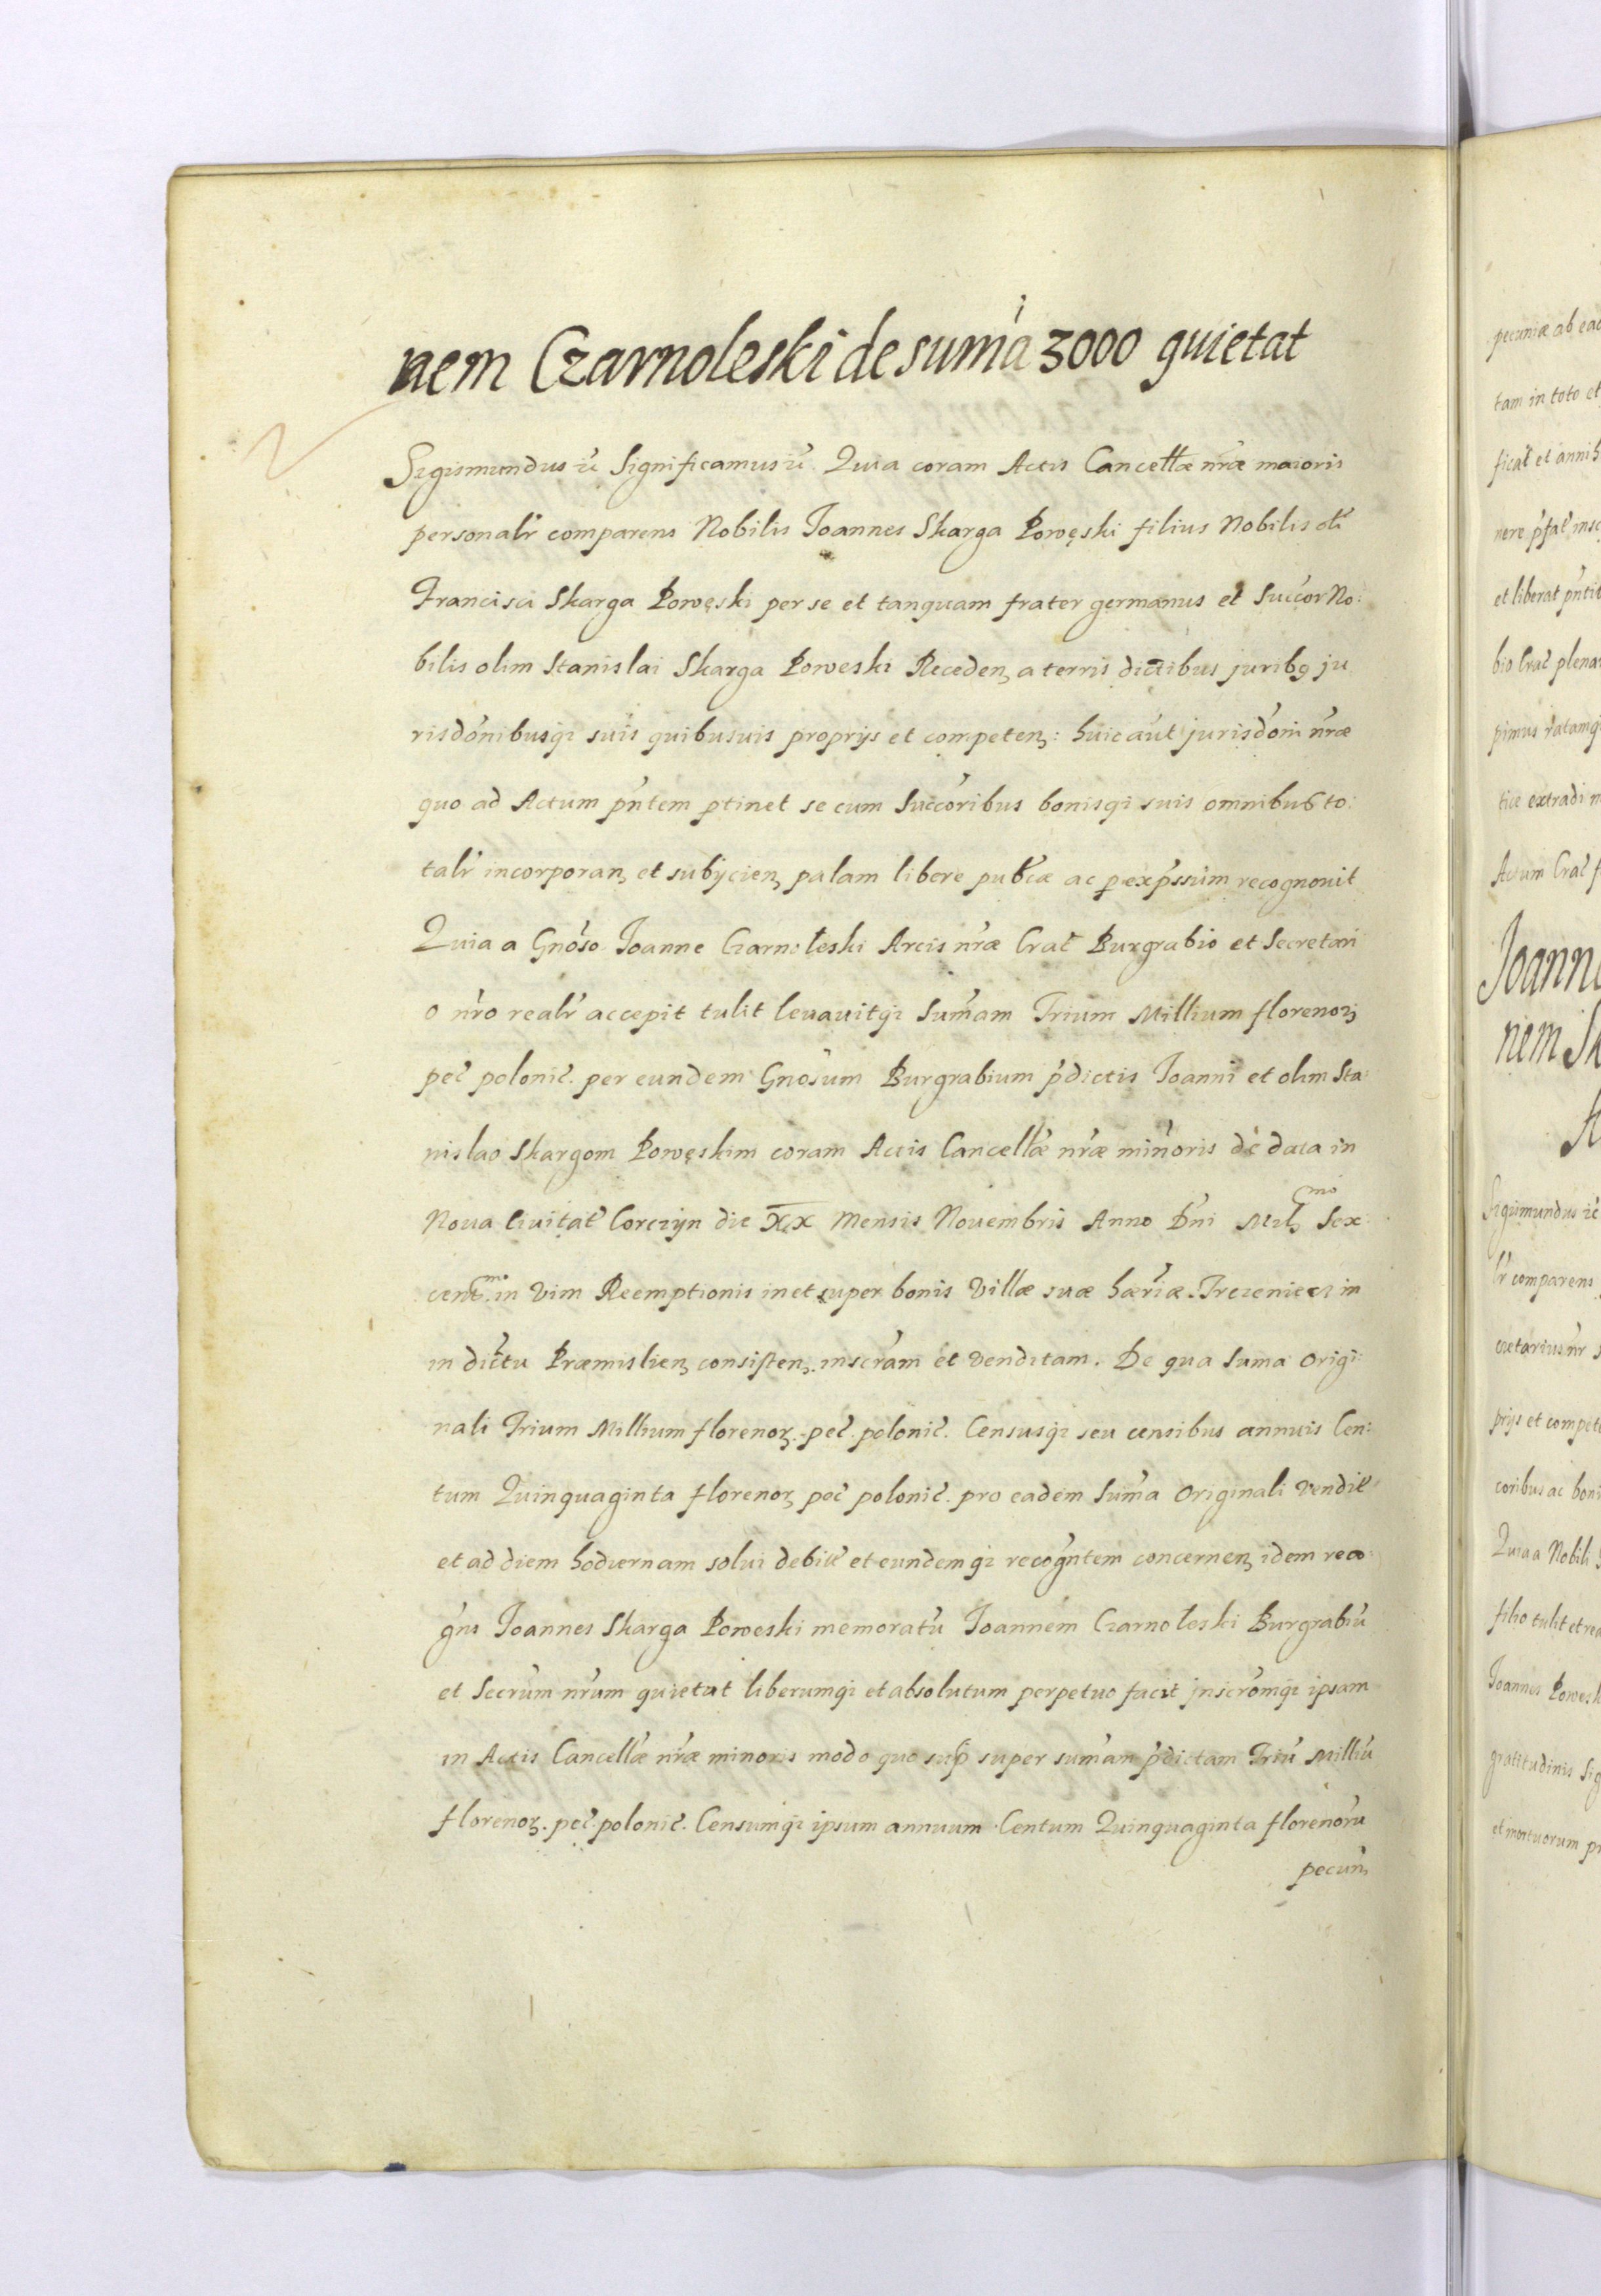 nem Czarnoleski de sum̃a 3000 quietat
Sigismundus ic̃ Significamus ic̃ Quia coram Actis Cancellæ nr̃æ maioris
personalr̃ comparens Nobilis Joannes Skarga Powęski filius Nobilis oli̅
Francisci Skarga Powęski per se et tanquam frater germanus et Succ̃or No:
bilis olim Stanislai Skarga Poweski Recedenꝫ a terris dict̃ibus juribꝫ ju
risdõnibusqꝫ suis quibusuis proprijs et competenꝫ: huic aũt jurisdõni nr̃æ
quo ad Actum pñtem ptinet se cum Succ̃oribus bonisqꝫ suis omnibus to:
talr̃ incorporanꝫ et subijcienꝫ palam libere publ̃cæ ac p exp̃ssum recognouit
Quia a Gnõso Joanne Czarnoleski Arcis nr̃æ Crac̃ Burgrabio et Secretari
o nr̃o realr̃ accepit tulit leuauitqꝫ Sum̃am Trium Millium florenoꝝ
pec̃ polonic̃. per eundem Gnõsum Burgrabium p̃dictis Joanni et olim Sta:
nislao Skargom Powęskim coram Actis Cancellæ nr̃æ minoris dẽ data in
Noua Ciuitat̃ Corczyn die XIX Mensis Nouembris Anno Dñi Milꝫmo Sex
cent̃mo. in vim Reemptionis in et super bonis Villæ suæ hær̃iæ. Trczeniecz in
in dict̃tu Præmislienꝫ consistenꝫ. inscr̃am et venditam. De qua Suma origi:
nali Trium Millium florenoꝝ. pec̃. polonic̃. Censusqꝫ seu censibus annuis Cen:
tum Quinquaginta florenoꝝ pec̃ polonic̃. pro eadem Sum̃a Originali vendit̃
et ad diem hodiernam solui debit̃ et eundemqꝫ recogñtem concernenꝫ idem reco
gñs Joannes Skarga Poweski memoratũ Joannem Czarnoleski Burgrabiũ
et Secr̃um nr̃um quietat liberumqꝫ et absolutum perpetuo facit jnscrõmqꝫ ipsam
in Actis Cancellæ nr̃æ minoris modo quo sup̃ super sum̃am p̃dictam Triũ Milliũ
florenoꝝ. pec̃. polonic̃. Censumqꝫ ipsum annuum Centum Quinquaginta florenorũ
pecunꝫ
pecuniæ ab ead
tam in toto et
ficat̃ et annih
et liberat pñti
bio Crac̃ plena
pimus ratamq
tice extradi m
Actum Crac̃ f
Joanne
nem Sk
Sigismundus ic̃
lr̃ comparens
cretarius nr̃ s
prijs et compete
coribus ac boni
Quia a Nobili
filio tulit et rea
Joannes Powesk
gratitudinis Sig
et mortuorum pr